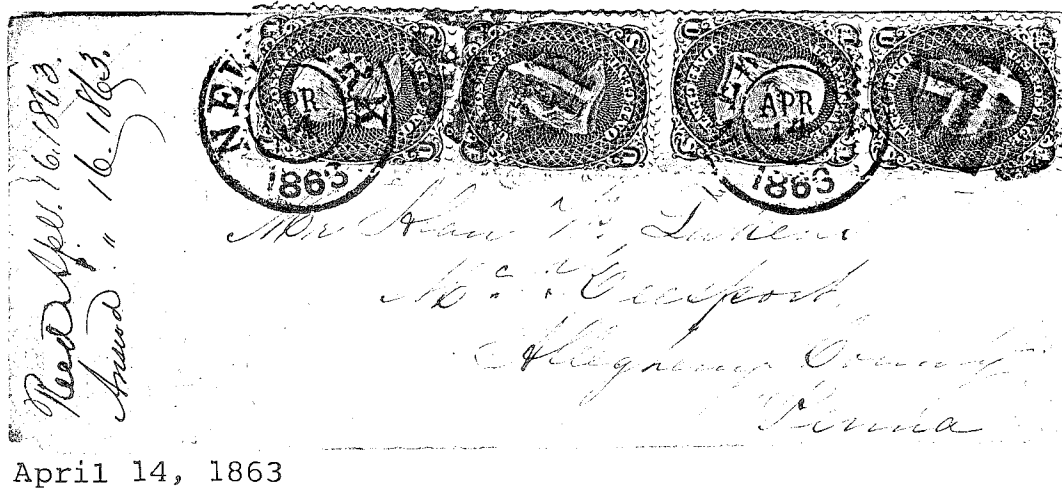 Recd Apl. 16. 1863.
Answd. " 16. 1863.
NEW
APR
14
1863
APR
14
1863
Mr Alan W. Lukens
Mc. Keesport
Allegheny County
Penna
April 14, 1863